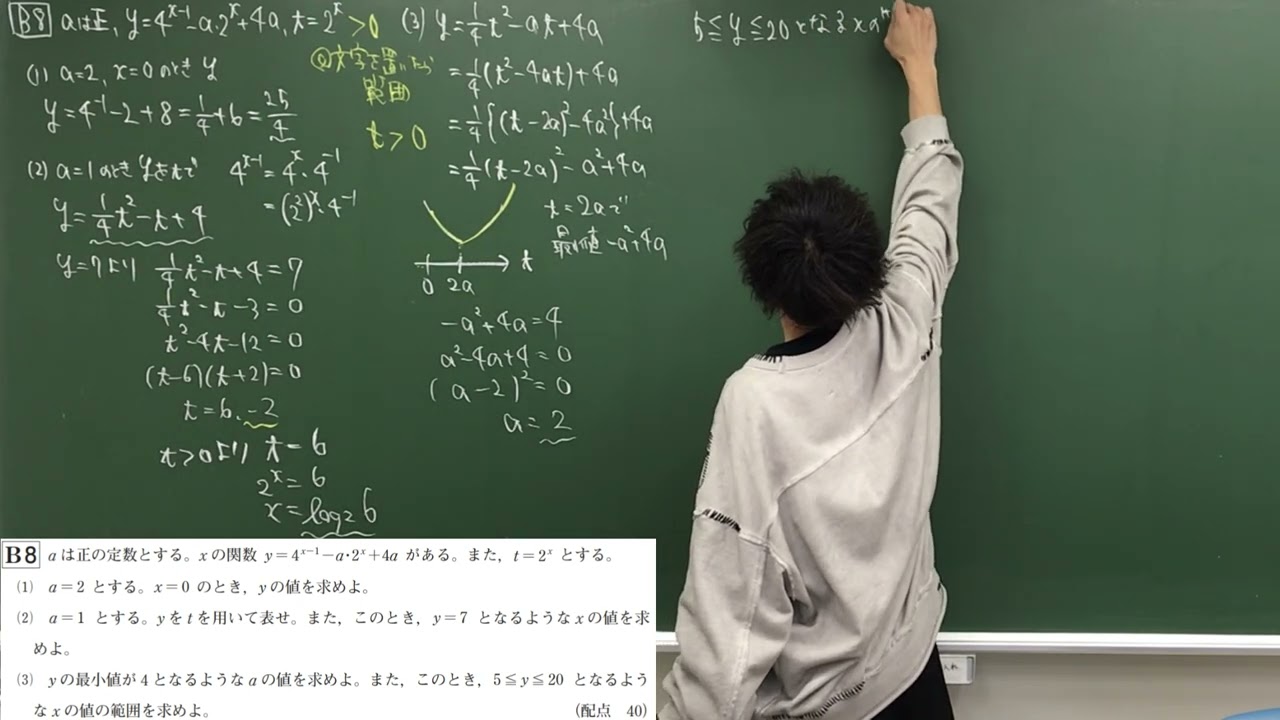 B8 aは正, y=4^{x-1}-a・2^x+4a, t=2^x>0
(1) a=2, x=0のとき y
y=4^{-1}-2+8=1/4+6=25/4
(2) a=1のとき yをtで 4^{x-1}=4^x・4^{-1}
=(2^2)^x・4^{-1}
y=1/4t^2-t+4
y=7より 1/4t^2-t+4=7
1/4t^2-t-3=0
t^2-4t-12=0
(t-6)(t+2)=0
t=6, -2
t>0より t=6
2^x=6
x=log_2 6
文字を置いたら
範囲
t>0
(3) y=1/4t^2-at+4a
=1/4(t^2-4at)+4a
=1/4{(t-2a)^2-4a^2}+4a
=1/4(t-2a)^2-a^2+4a
t=2aで
最小値 -a^2+4a
0 2a t
-a^2+4a=4
a^2-4a+4=0
(a-2)^2=0
a=2
5≦y≦20となるxの
B8 aは正の定数とする。xの関数 y=4^{x-1}-a・2^x+4a がある。また，t=2^x とする。
(1) a=2 とする。x=0 のとき，yの値を求めよ。
(2) a=1 とする。yをtを用いて表せ。また，このとき，y=7 となるようなxの値を求
めよ。
(3) yの最小値が4となるようなaの値を求めよ。また，このとき，5≦y≦20 となるよう
なxの値の範囲を求めよ。 (配点 40)